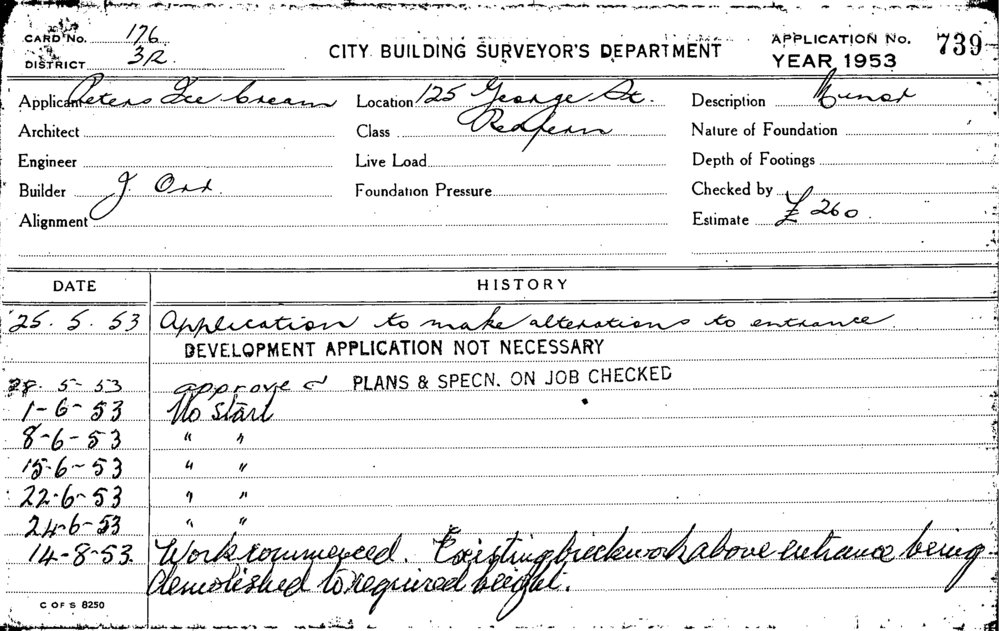 CARD No. 176
DISTRICT 3R
CITY BUILDING SURVEYOR'S DEPARTMENT
APPLICATION No. 739
YEAR 1953
Applicant Peters Ice Cream Location 125 George St. Description Minor
Architect Class Redfern Nature of Foundation
Engineer Live Load Depth of Footings
Builder J. Orr. Foundation Pressure Checked by
Alignment Estimate £ 260.
DATE HISTORY
25. 5. 53 Application to make alterations to entrance.
DEVELOPMENT APPLICATION NOT NECESSARY
28. 5- 53 approved PLANS & SPECN. ON JOB CHECKED
1-6-53 No Start
8-6-53 " "
15-6-53 " "
22-6-53 " "
24-6-53 " "
14-8-53. Work commenced. Existing brickwork above entrance being
demolished to required height.
C OF S 8250